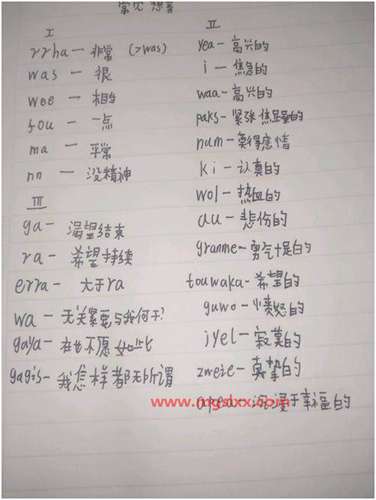 常见想音
I
rrha — 非常 (>was)
was — 很
wee — 相当
fou — 一点
ma — 平常
nn — 没精神
III
ga — 渴望结束
ra — 希望持续
erra — 大于ra
wa — 无关紧要与我何干?
gaya — 在也不愿如此
gagis — 我怎样都无所谓
II
yea — 高兴的
i — 焦急的
waa — 高兴的
paks — 紧张焦虑的
num — 莫得感情
ki — 认真的
wol — 热血的
au — 悲伤的
granme — 勇气十足的
touwaka — 希望的
guwo — 愤怒的
jyel — 寂寞的
zweie — 真挚的
于幸福的
www.mgslxx.com